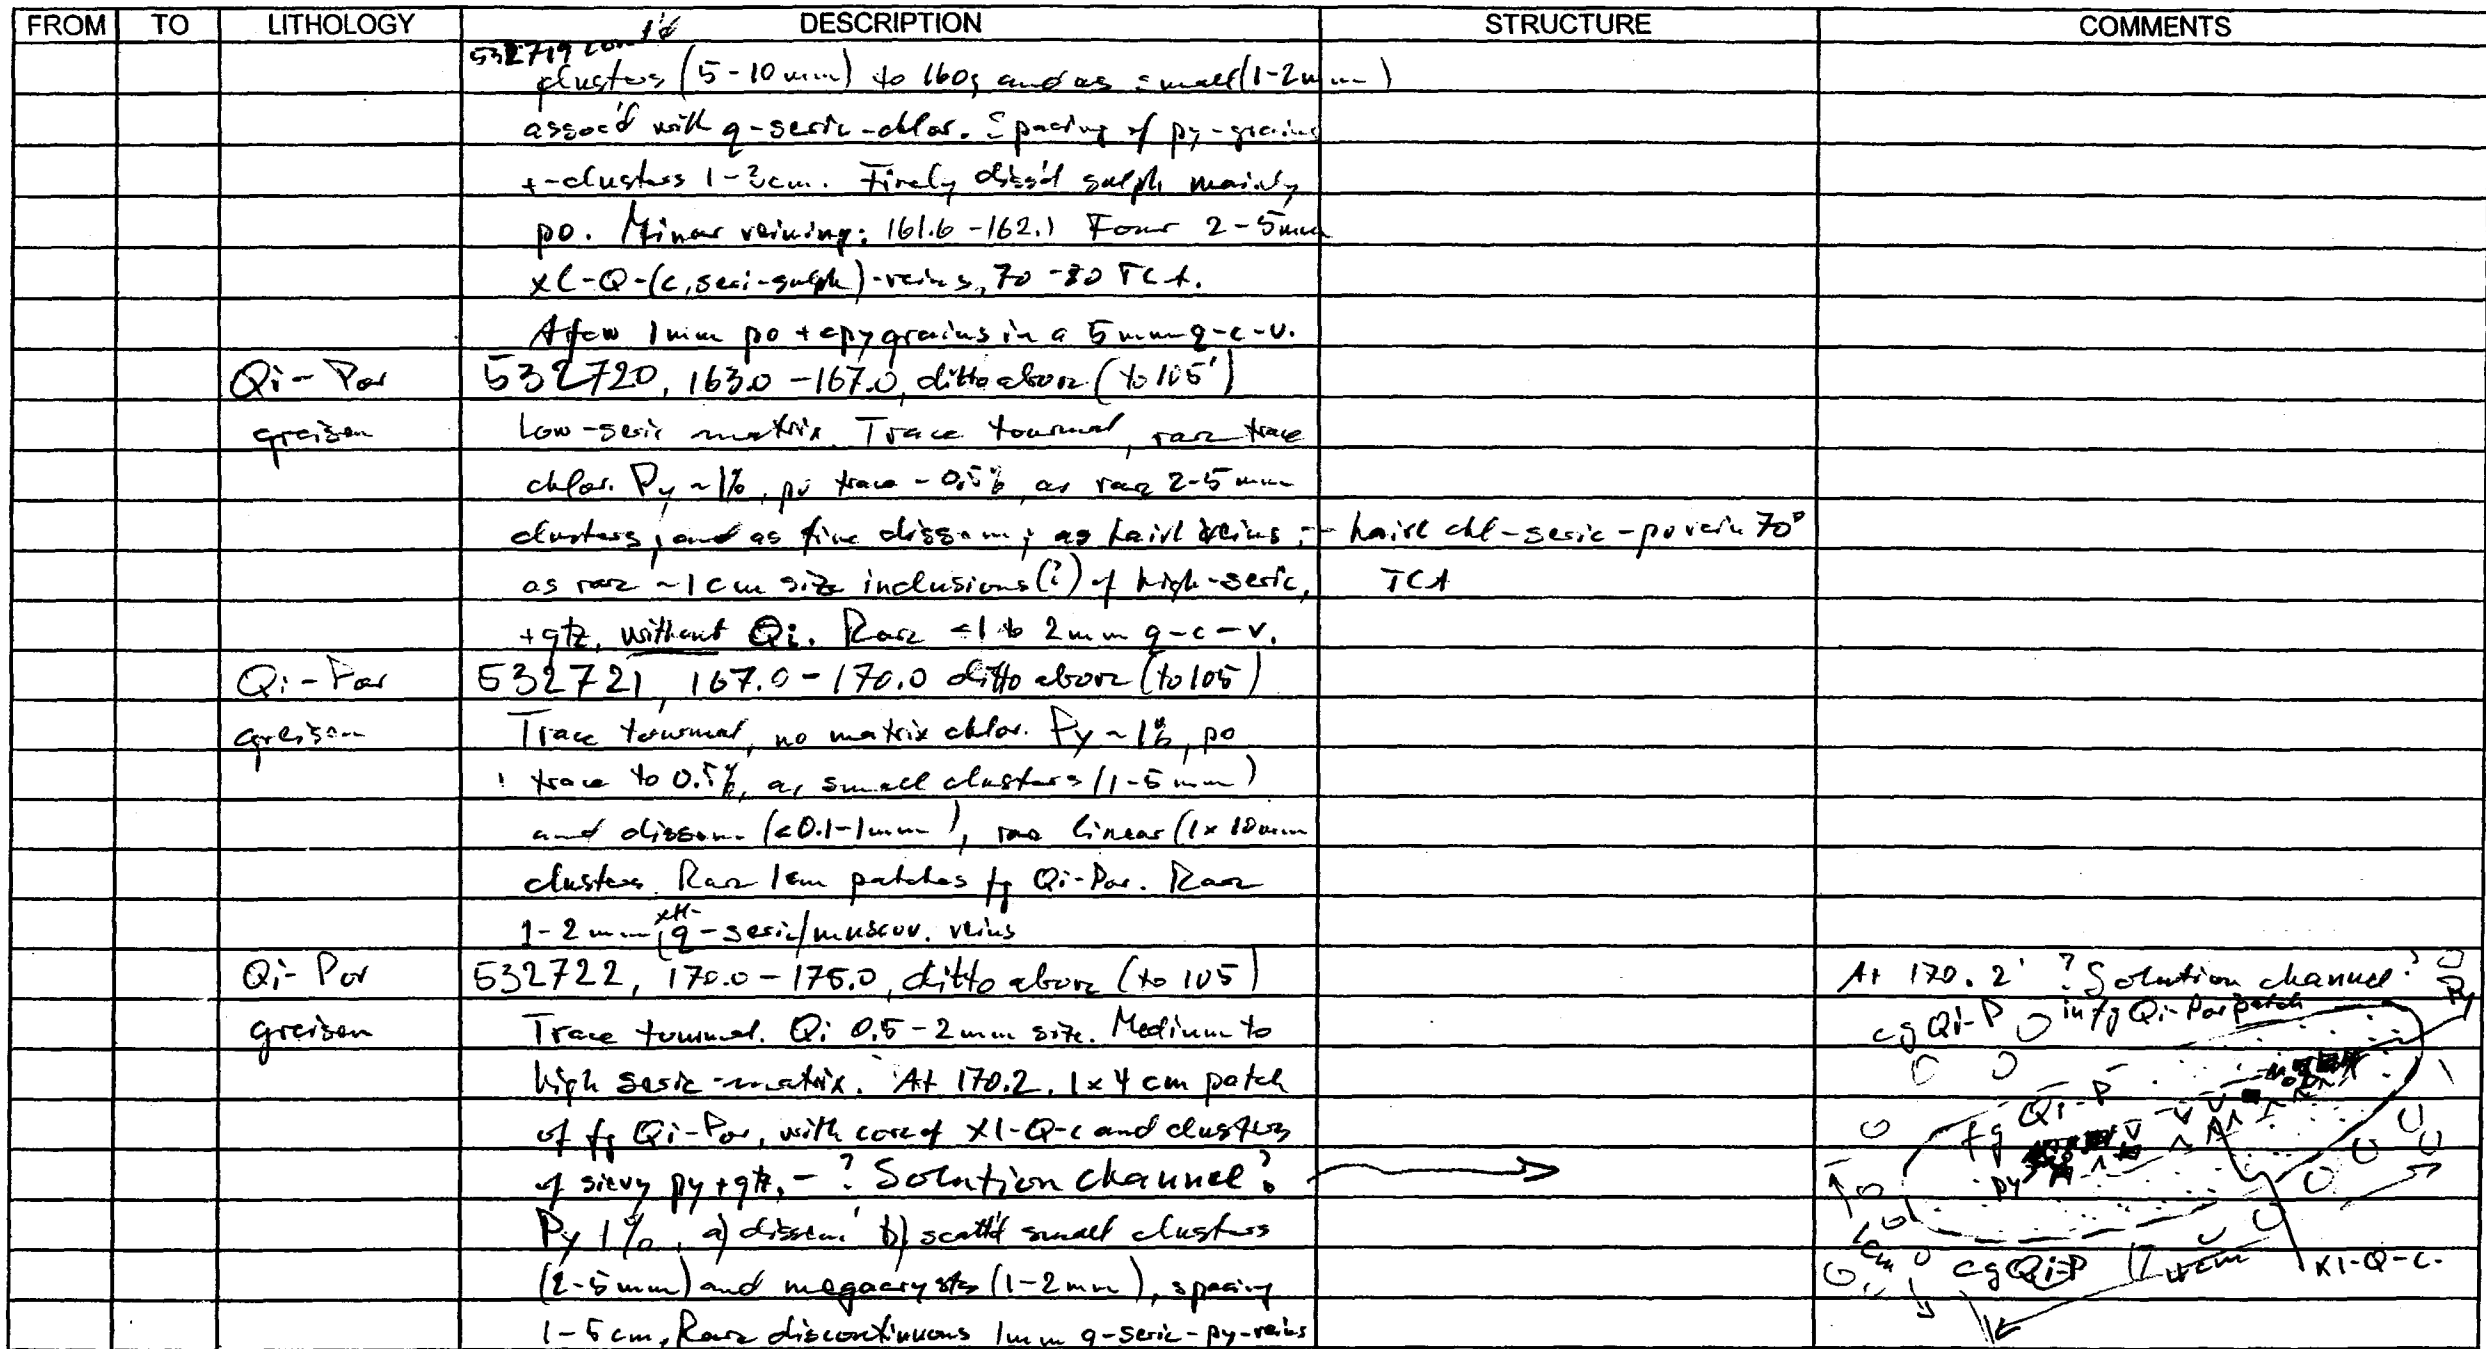 FROM TO LITHOLOGY DESCRIPTION STRUCTURE COMMENTS
532719 cont'd
clusters (5-10mm) to 160; and as small (1-2mm)
assoc'd with q-seric-chlor. Spacing of py-grains
+-clusters 1-3cm. Finely diss'd sulph mainly
po. Minor veining: 161.6-162.1 Four 2-5mm
xl-Q-(c, seri-sulph)-veins, 70-80 TCA.
A few 1mm po + cpy grains in a 5mm q-c-v.
Qi-Por 532720, 163.0-167.0, ditto above (to 105')
greisen Low-seric matrix. Trace tourmal, rare trace
chlor. Py ~1%, po trace - 0.5%, as rare 2-5mm
clusters, and as fine dissem; as hairl veins; - hairl chl-seric-po vein 70°
as rare ~1cm size inclusions(?) of high-seric, TCA
+qtz, without Qi. Rare <1 to 2mm q-c-v.
Qi-Por 532721, 167.0-170.0 ditto above (to 105)
greisen Trace tourmal, no matrix chlor. Py ~1%, po
trace to 0.5%, as small clusters (1-5mm)
and dissem. (<0.1-1mm), rare linear (1x10mm
clusters. Rare 1cm patches fg Qi-Por. Rare
1-2mm xtl- q-seric/muscov. veins
Qi-Por 532722, 170.0-175.0, ditto above (to 105) At 170.2' ? Solution channel?
greisen Trace tourmal. Qi 0.5-2mm size. Medium to cg Qi-P in fg Qi-Por patch Py
high seric-matrix. At 170.2, 1x4 cm patch
of fg Qi-Por, with core of xl-Q-c and clusters fg Qi-P
of sievy py+qtz, - ? Solution channel? py
Py 1%, a) dissem' b) scatt'd small clusters
(2-5mm) and megacrysts (1-2mm), spacing 1 cm cg Qi-P 4cm xl-Q-c.
1-5cm, Rare discontinuous 1mm q-seric-py-veins